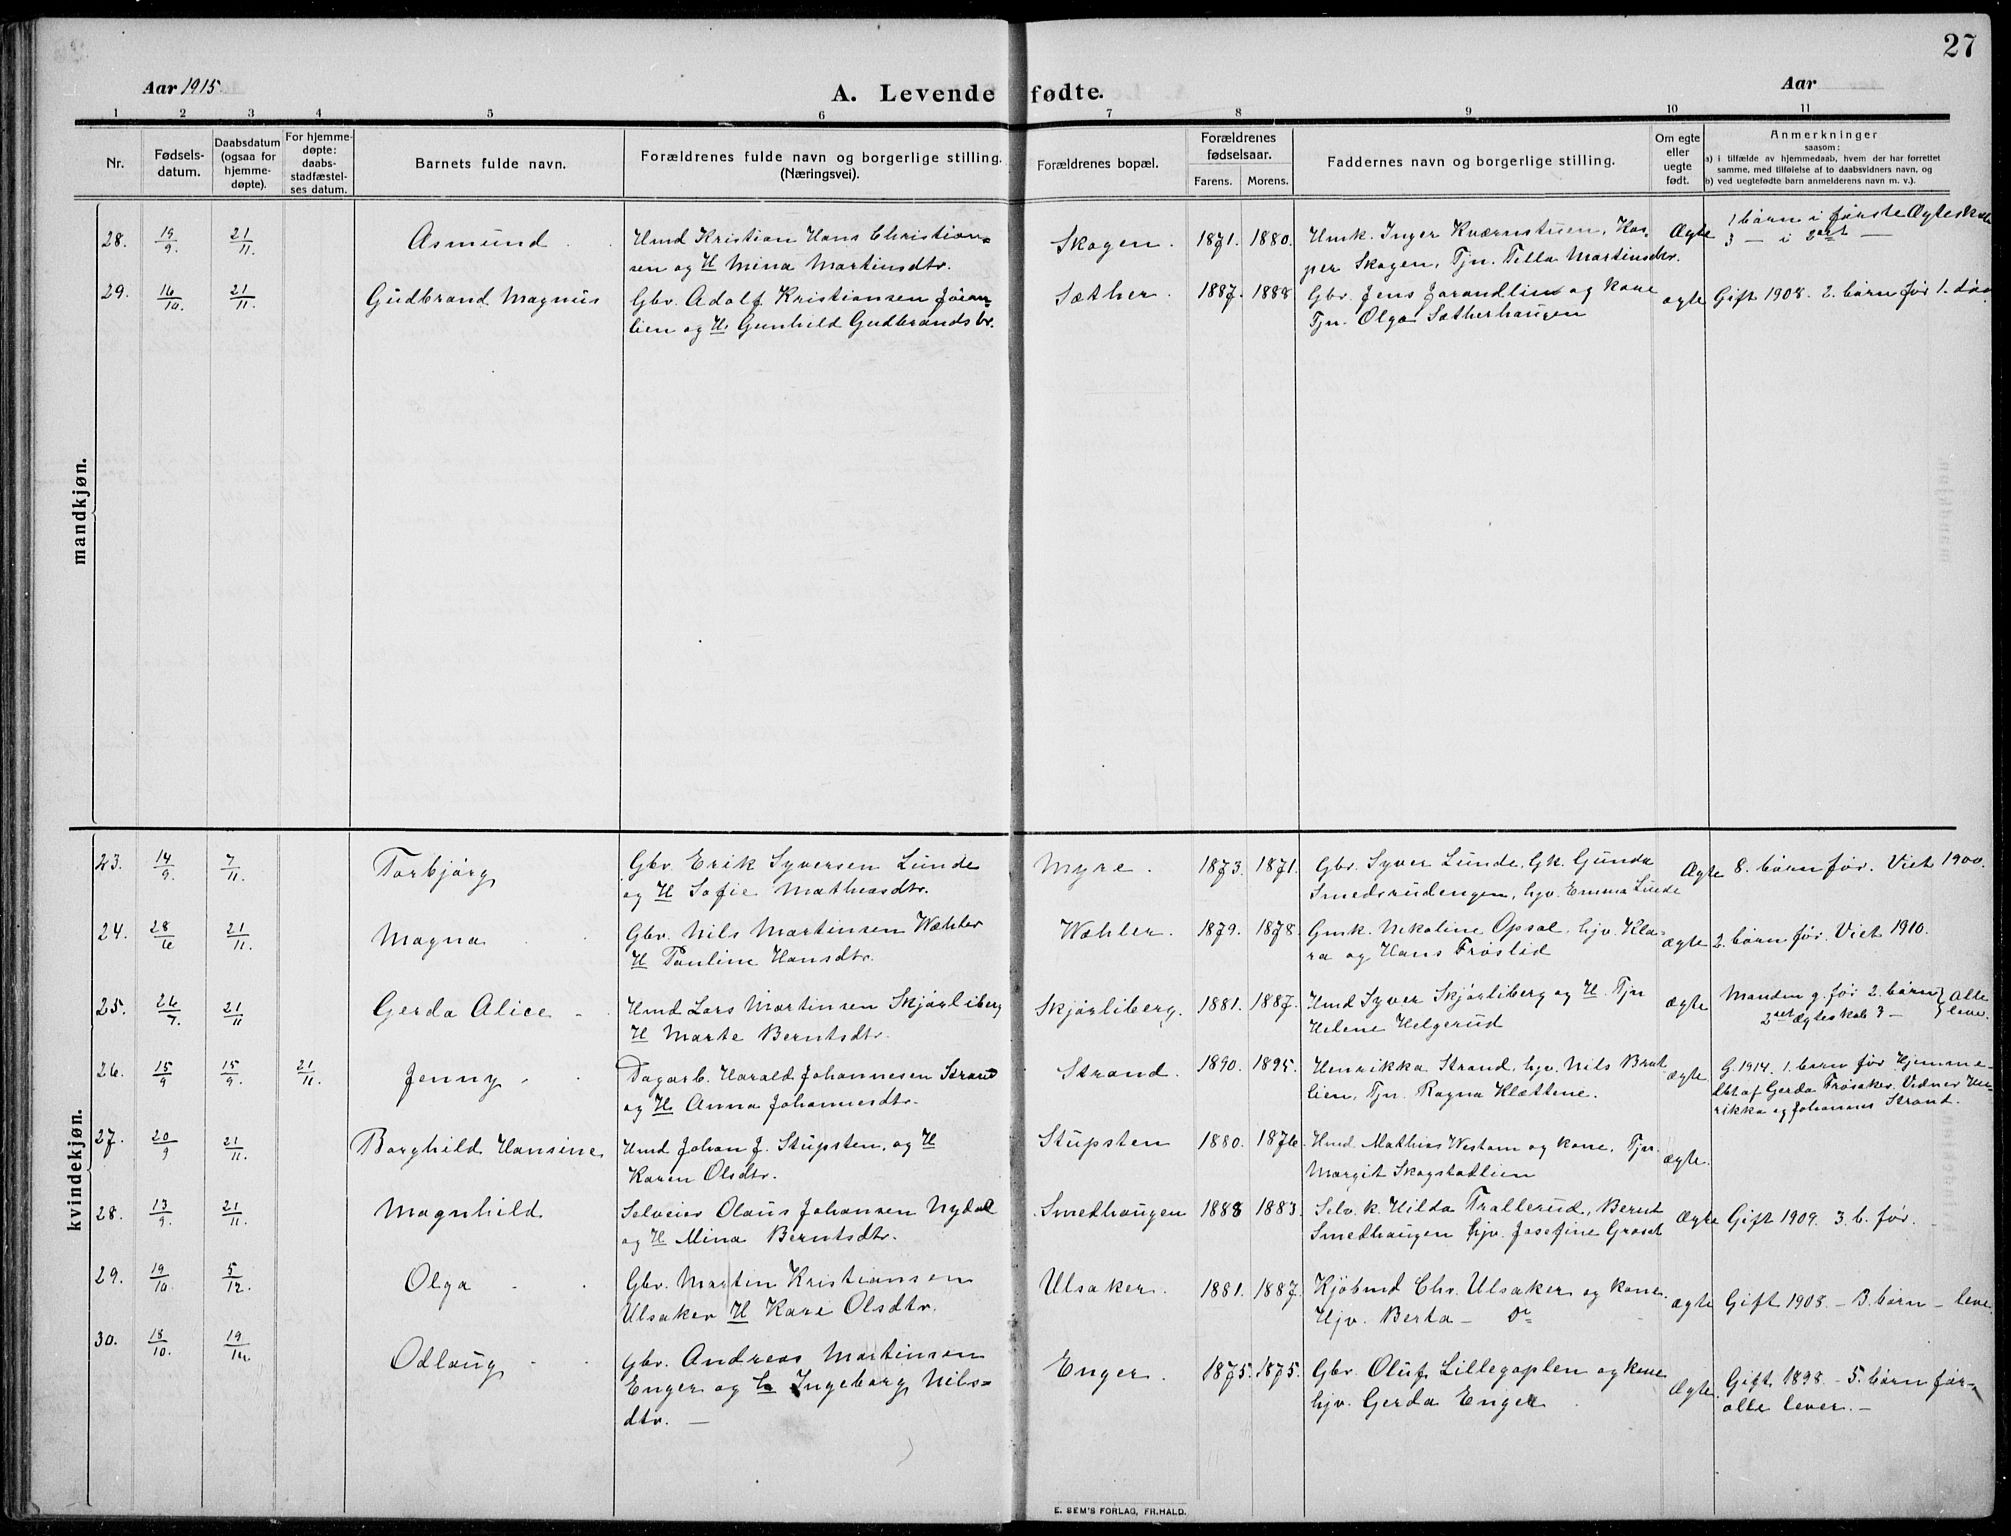 27
Aar 1915
A. Levende fødte.
Aar
1 2 3 4 5 6 7 8 9 10 11
Nr.
Fødsels-
datum.
Daabsdatum
(ogsaa for
hjemme-
døpte).
For hjemme-
døpte:
daabs-
stadfæstel-
ses datum.
Barnets fulde navn.
Forældrenes fulde navn og borgerlige stilling.
(Næringsvei).
Forældrenes bopæl.
Forældrenes
fødselsaar.
Farens. Morens.
Faddernes navn og borgerlige stilling.
Om egte
eller
uegte
født.
Anmerkninger
saasom:
a) i tilfælde av hjemmedaab, hvem der har forrettet
samme, med tilføielse af to daabsvidners navn, og
b) ved uegtefødte barn anmelderens navn m. v.).
mandkjøn.
28. 19/9. 21/11. Asmund Hmd Kristian Hans Christian= Skogen. 1871. 1880. Hmk. Inger Kværnstuen, Kas- Ægte 1 børn i første Ægteskab
sen og H Mina Martinsdtr. per Skogen, Tjn. Tilla Martinsdtr. 3 — i 2det —
29. 16/10. 21/11. Gudbrand Magnus Gbr. Adolf Kristiansen Jøran- Sæther. 1887. 1888 Gbr. Jens Jorandlien og kone ægte Gift 1908. 2. børn før 1. død
lien og H. Gunhild Gudbrandsdtr. Tjn. Olga Sætherhaugen
kvindekjøn.
23. 14/9. 7/11. Torbjørg Gbr. Erik Syversen Lunde Myre. 1873. 1871. Gbr. Syver Lunde, Gk. Gunda Ægte 8. børn før. Viet 1900.
og H Sofie Mathiasdtr. Smedsrudengen, hjv. Emma Lunde
24. 28/6 21/11. Magna Gbr. Nils Martinsen Wæhler Wæhler. 1879. 1878. Gmk. Nikoline Opsal, hjv. Kla- ægte 2. børn før. Viet 1910.
H Pauline Hansdtr. ra og Hans Frøslid
25. 26/7. 21/11 Gerda Alice Hmd Lars Martinsen Skjørliberg Skjørliberg. 1881. 1887. Hmd Syver Skjørliberg og H. Tjn ægte Manden g. før 2. børn } Alle
H Marte Berntsdtr. Helene Helgerud 2det Ægteskab 3 — } leve.
26. 15/9 15/9. 21/11. Jenny Dagarb. Harald Johannesen Strand Strand. 1890. 1895. Henrikka Strand, hjv. Nils Brat- ægte G. 1914. 1. barn før Hjemme-
og H Anna Johannesdtr. lien, Tjn. Ragna Klættene. dbt af Gerda Frøsaker. Vidner Hen-
rikka og Johannes Strand.
27. 20/9 21/11. Borghild Hansine Hmd Johan J. Stupsten, og H Stupsten 1880. 1876. Hmd. Mathias Westom og kone, Tjn. ægte.
Karen Olsdtr. Margit Skogstadlien
28. 13/9. 21/11. Magnhild Selveier Olaus Johansen Nydal Smedhaugen 1888 1883. Selv. k. Hilda Trallerud, Bernt Ægte Gift 1909. 3. b. før.
og H Mina Berntsdtr. Smedhaugen hjv. Josefine
29. 19/10. 5/12. Olga Gbr. Martin Kristiansen Ulsaker. 1881. 1887. Kjøbmd Chr. Ulsaker og kone. ægte Gift 1908. — 3. børn — leve.
Ulsaker H Kari Olsdtr. Hjv. Berta — Do
30. 18/10. 19/12 Odlaug Gbr. Andreas Martinsen Enger. 1875. 1875. Gbr. Oluf Lillegaplen og kone Ægte Gift 1898 — 5. børn før —
Enger og H Ingeborg Nils= hjv. Gerda Enger alle lever. —
dtr. —
E. SEM'S FORLAG, FR.HALD.